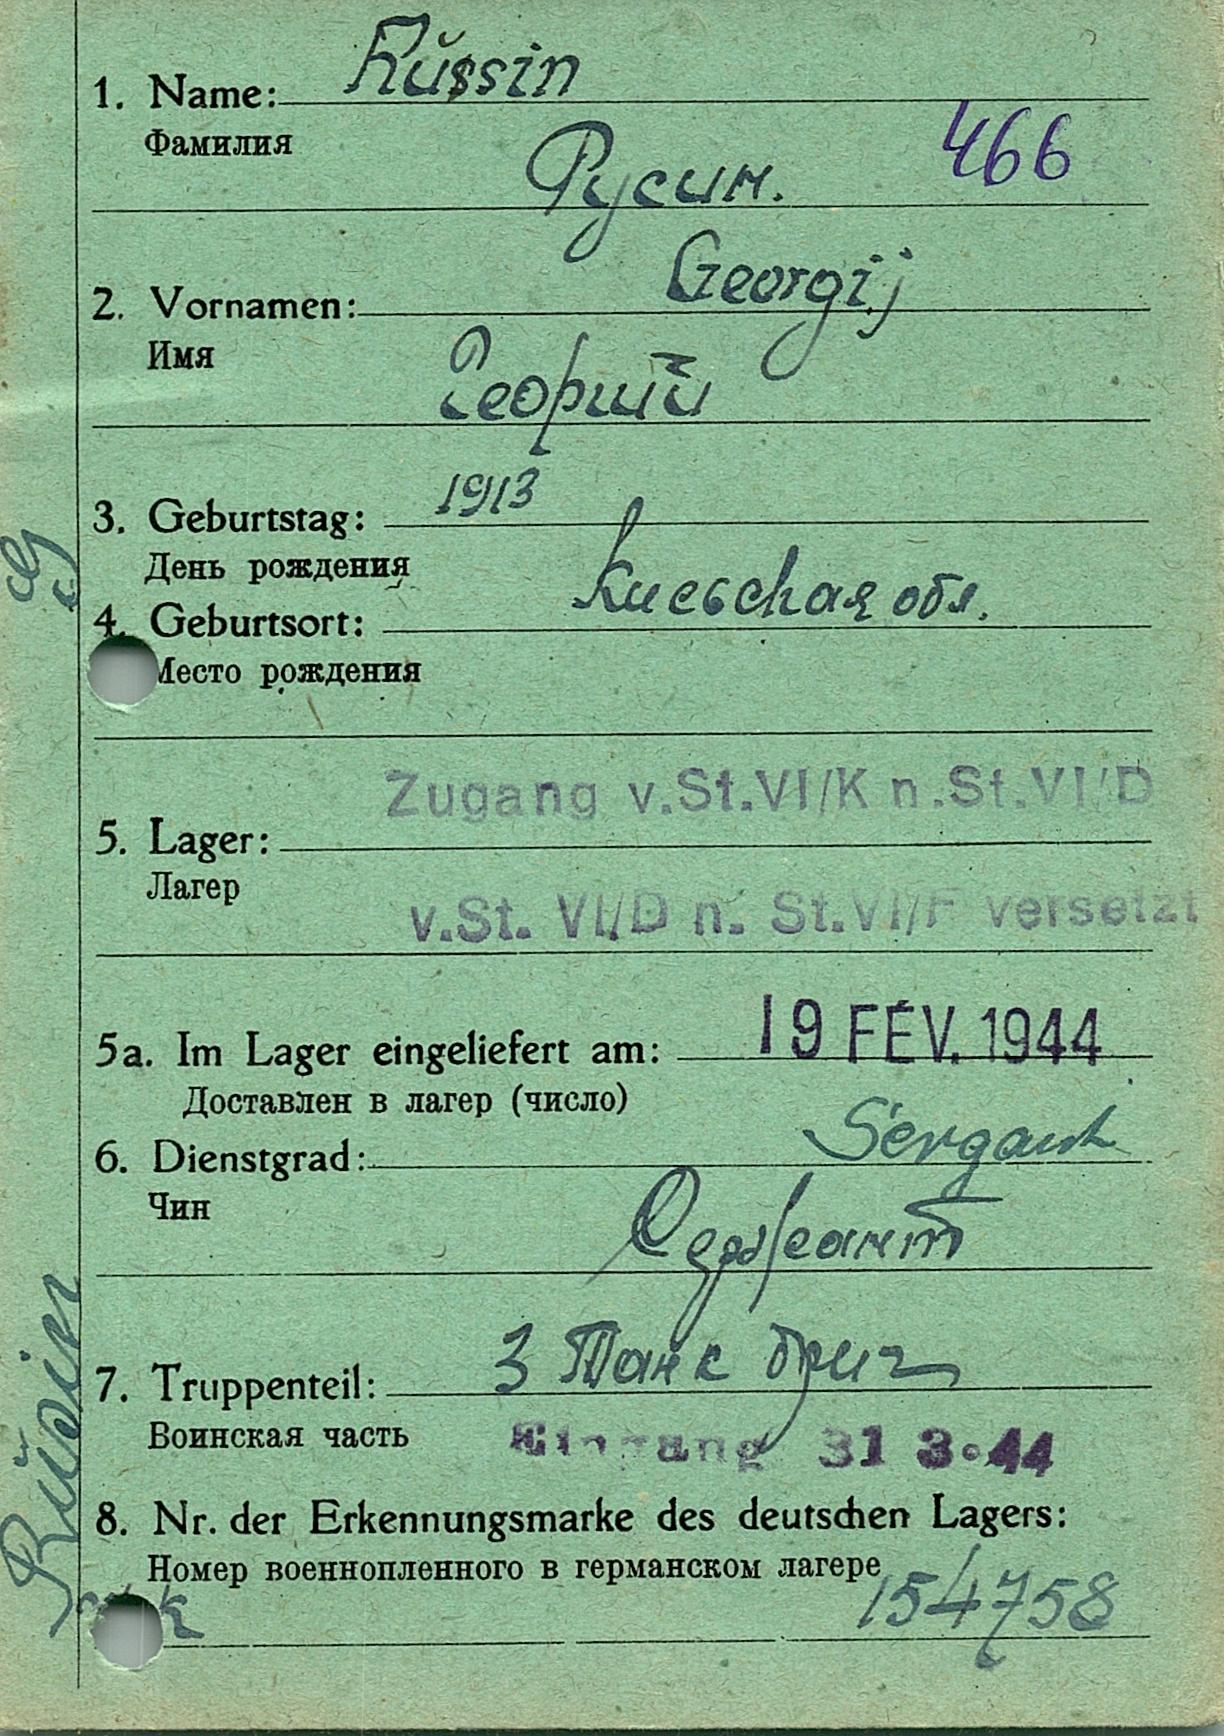 Rŭssin
1. Name:
Фамилия
466
Русин.
Georgij
2. Vornamen:
Имя
Георгий
1913
3. Geburtstag:
День рождения
Киевская обл.
4. Geburtsort:
Место рождения
Zugang v.St.VI/K n.St.VI/D
5. Lager:
Лагер
v.St. VI/D n. St.VI/F versetzt
5a. Im Lager eingeliefert am: 19 FÉV. 1944
Доставлен в лагер (число)
Sergant
6. Dienstgrad:
Чин
Сержант
3 Танк бриг
7. Truppenteil:
Воинская часть
Eingang 31 3.44
8. Nr. der Erkennungsmarke des deutschen Lagers:
Номер военнопленного в германском лагере
154758